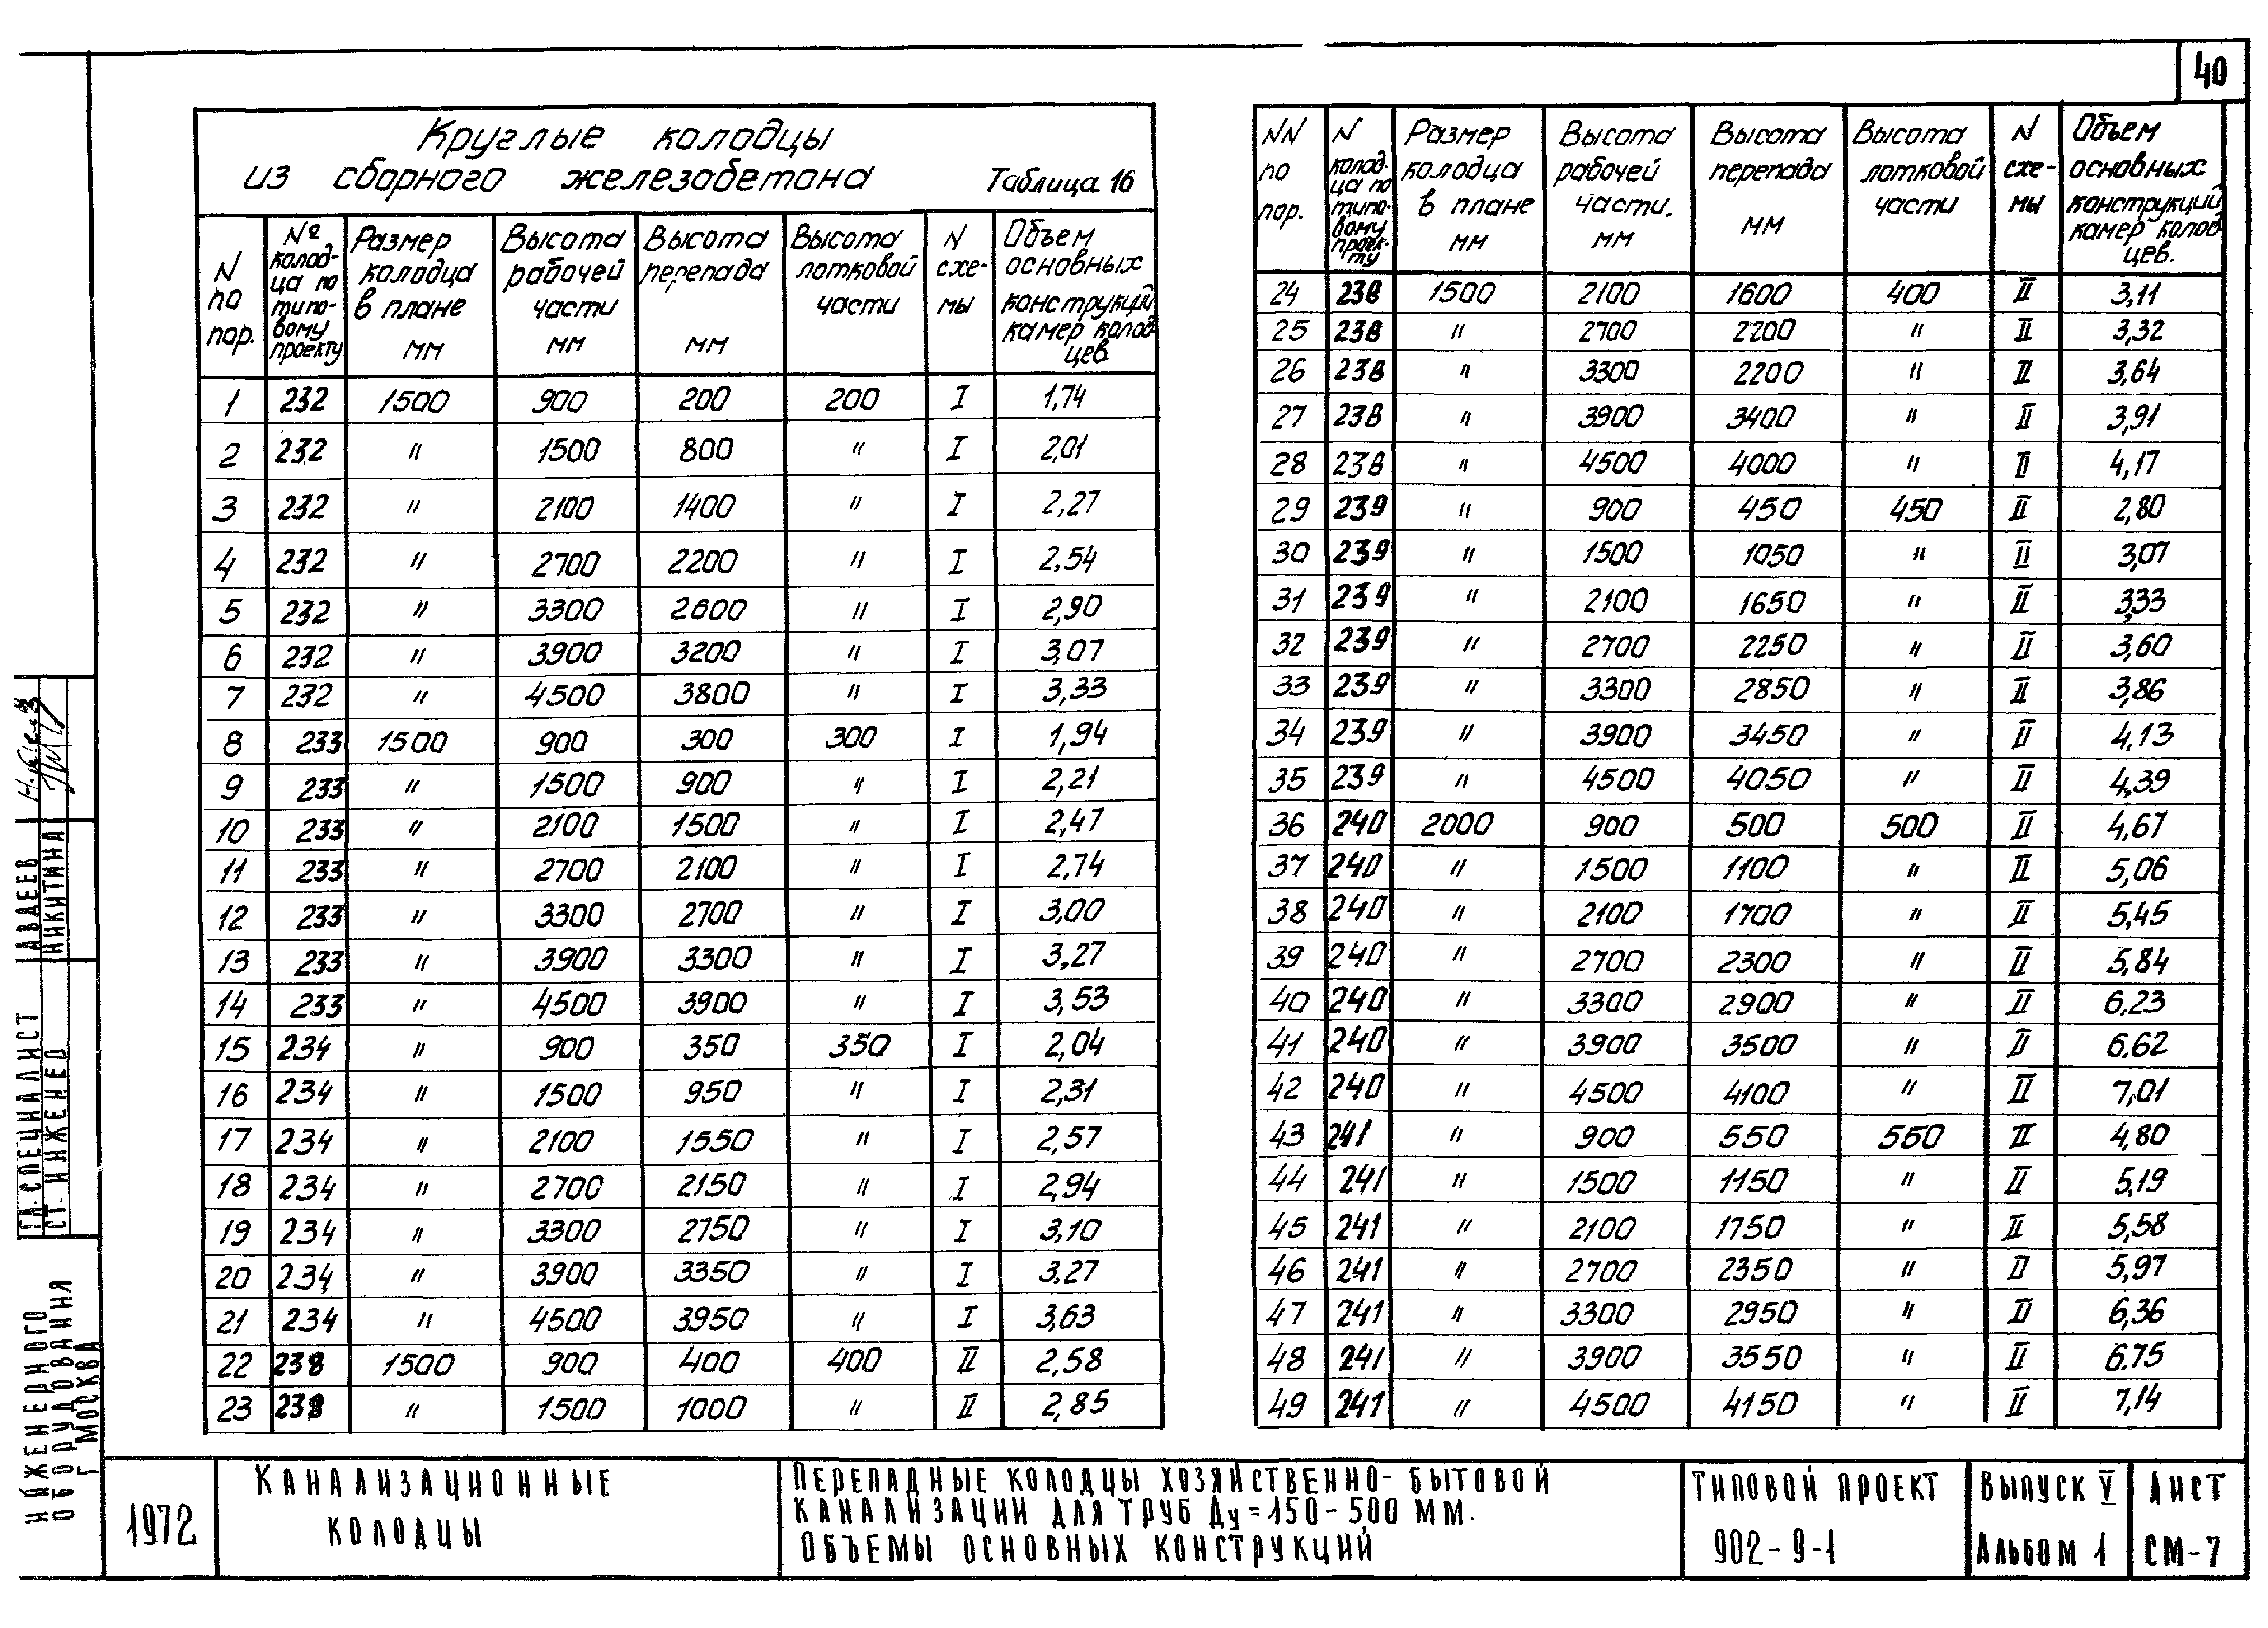 40
Круглые колодцы
из сборного железобетона Таблица 16
N по пор. № колодца по типовому проекту Размер колодца в плане мм Высота рабочей части мм Высота перепада мм Высота лотковой части N схемы Объем основных конструкций камер колодцев
1 232 1500 900 200 200 I 1,74
2 232 " 1500 800 " I 2,01
3 232 " 2100 1400 " I 2,27
4 232 " 2700 2200 " I 2,54
5 232 " 3300 2600 " I 2,90
6 232 " 3900 3200 " I 3,07
7 232 " 4500 3800 " I 3,33
8 233 1500 900 300 300 I 1,94
9 233 " 1500 900 " I 2,21
10 233 " 2100 1500 " I 2,47
11 233 " 2700 2100 " I 2,74
12 233 " 3300 2700 " I 3,00
13 233 " 3900 3300 " I 3,27
14 233 " 4500 3900 " I 3,53
15 234 " 900 350 350 I 2,04
16 234 " 1500 950 " I 2,31
17 234 " 2100 1550 " I 2,57
18 234 " 2700 2150 " I 2,94
19 234 " 3300 2750 " I 3,10
20 234 " 3900 3350 " I 3,27
21 234 " 4500 3950 " I 3,63
22 238 1500 900 400 400 II 2,58
23 238 " 1500 1000 " II 2,85
NN по пор. N колодца по типовому проекту Размер колодца в плане мм Высота рабочей части. мм Высота перепада мм Высота лотковой части N схемы Объем основных конструкций камер колодцев.
24 238 1500 2100 1600 400 II 3,11
25 238 " 2700 2200 " II 3,32
26 238 " 3300 2200 " II 3,64
27 238 " 3900 3400 " II 3,91
28 238 " 4500 4000 " II 4,17
29 239 " 900 450 450 II 2,80
30 239 " 1500 1050 " II 3,07
31 239 " 2100 1650 " II 3,33
32 239 " 2700 2250 " II 3,60
33 239 " 3300 2850 " II 3,86
34 239 " 3900 3450 " II 4,13
35 239 " 4500 4050 " II 4,39
36 240 2000 900 500 500 II 4,67
37 240 " 1500 1100 " II 5,06
38 240 " 2100 1700 " II 5,45
39 240 " 2700 2300 " II 5,84
40 240 " 3300 2900 " II 6,23
41 240 " 3900 3500 " II 6,62
42 240 " 4500 4100 " II 7,01
43 241 " 900 550 550 II 4,80
44 241 " 1500 1150 " II 5,19
45 241 " 2100 1750 " II 5,58
46 241 " 2700 2350 " II 5,97
47 241 " 3300 2950 " II 6,36
48 241 " 3900 3550 " II 6.75
49 241 " 4500 4150 " II 7,14
ГЛ. СПЕЦИАЛИСТ АВДЕЕВ
СТ. ИНЖЕНЕР НИКИТИНА
ИНЖЕНЕРНОГО
ОБОРУДОВАНИЯ
Г МОСКВА
1972
КАНАЛИЗАЦИОННЫЕ
КОЛОДЦЫ
ПЕРЕПАДНЫЕ КОЛОДЦЫ ХОЗЯЙСТВЕННО-БЫТОВОЙ
КАНАЛИЗАЦИИ ДЛЯ ТРУБ Ду=150-500 ММ.
ОБЪЕМЫ ОСНОВНЫХ КОНСТРУКЦИЙ
ТИПОВОЙ ПРОЕКТ
902-9-1
ВЫПУСК V
АЛЬБОМ 1
ЛИСТ
СМ-7